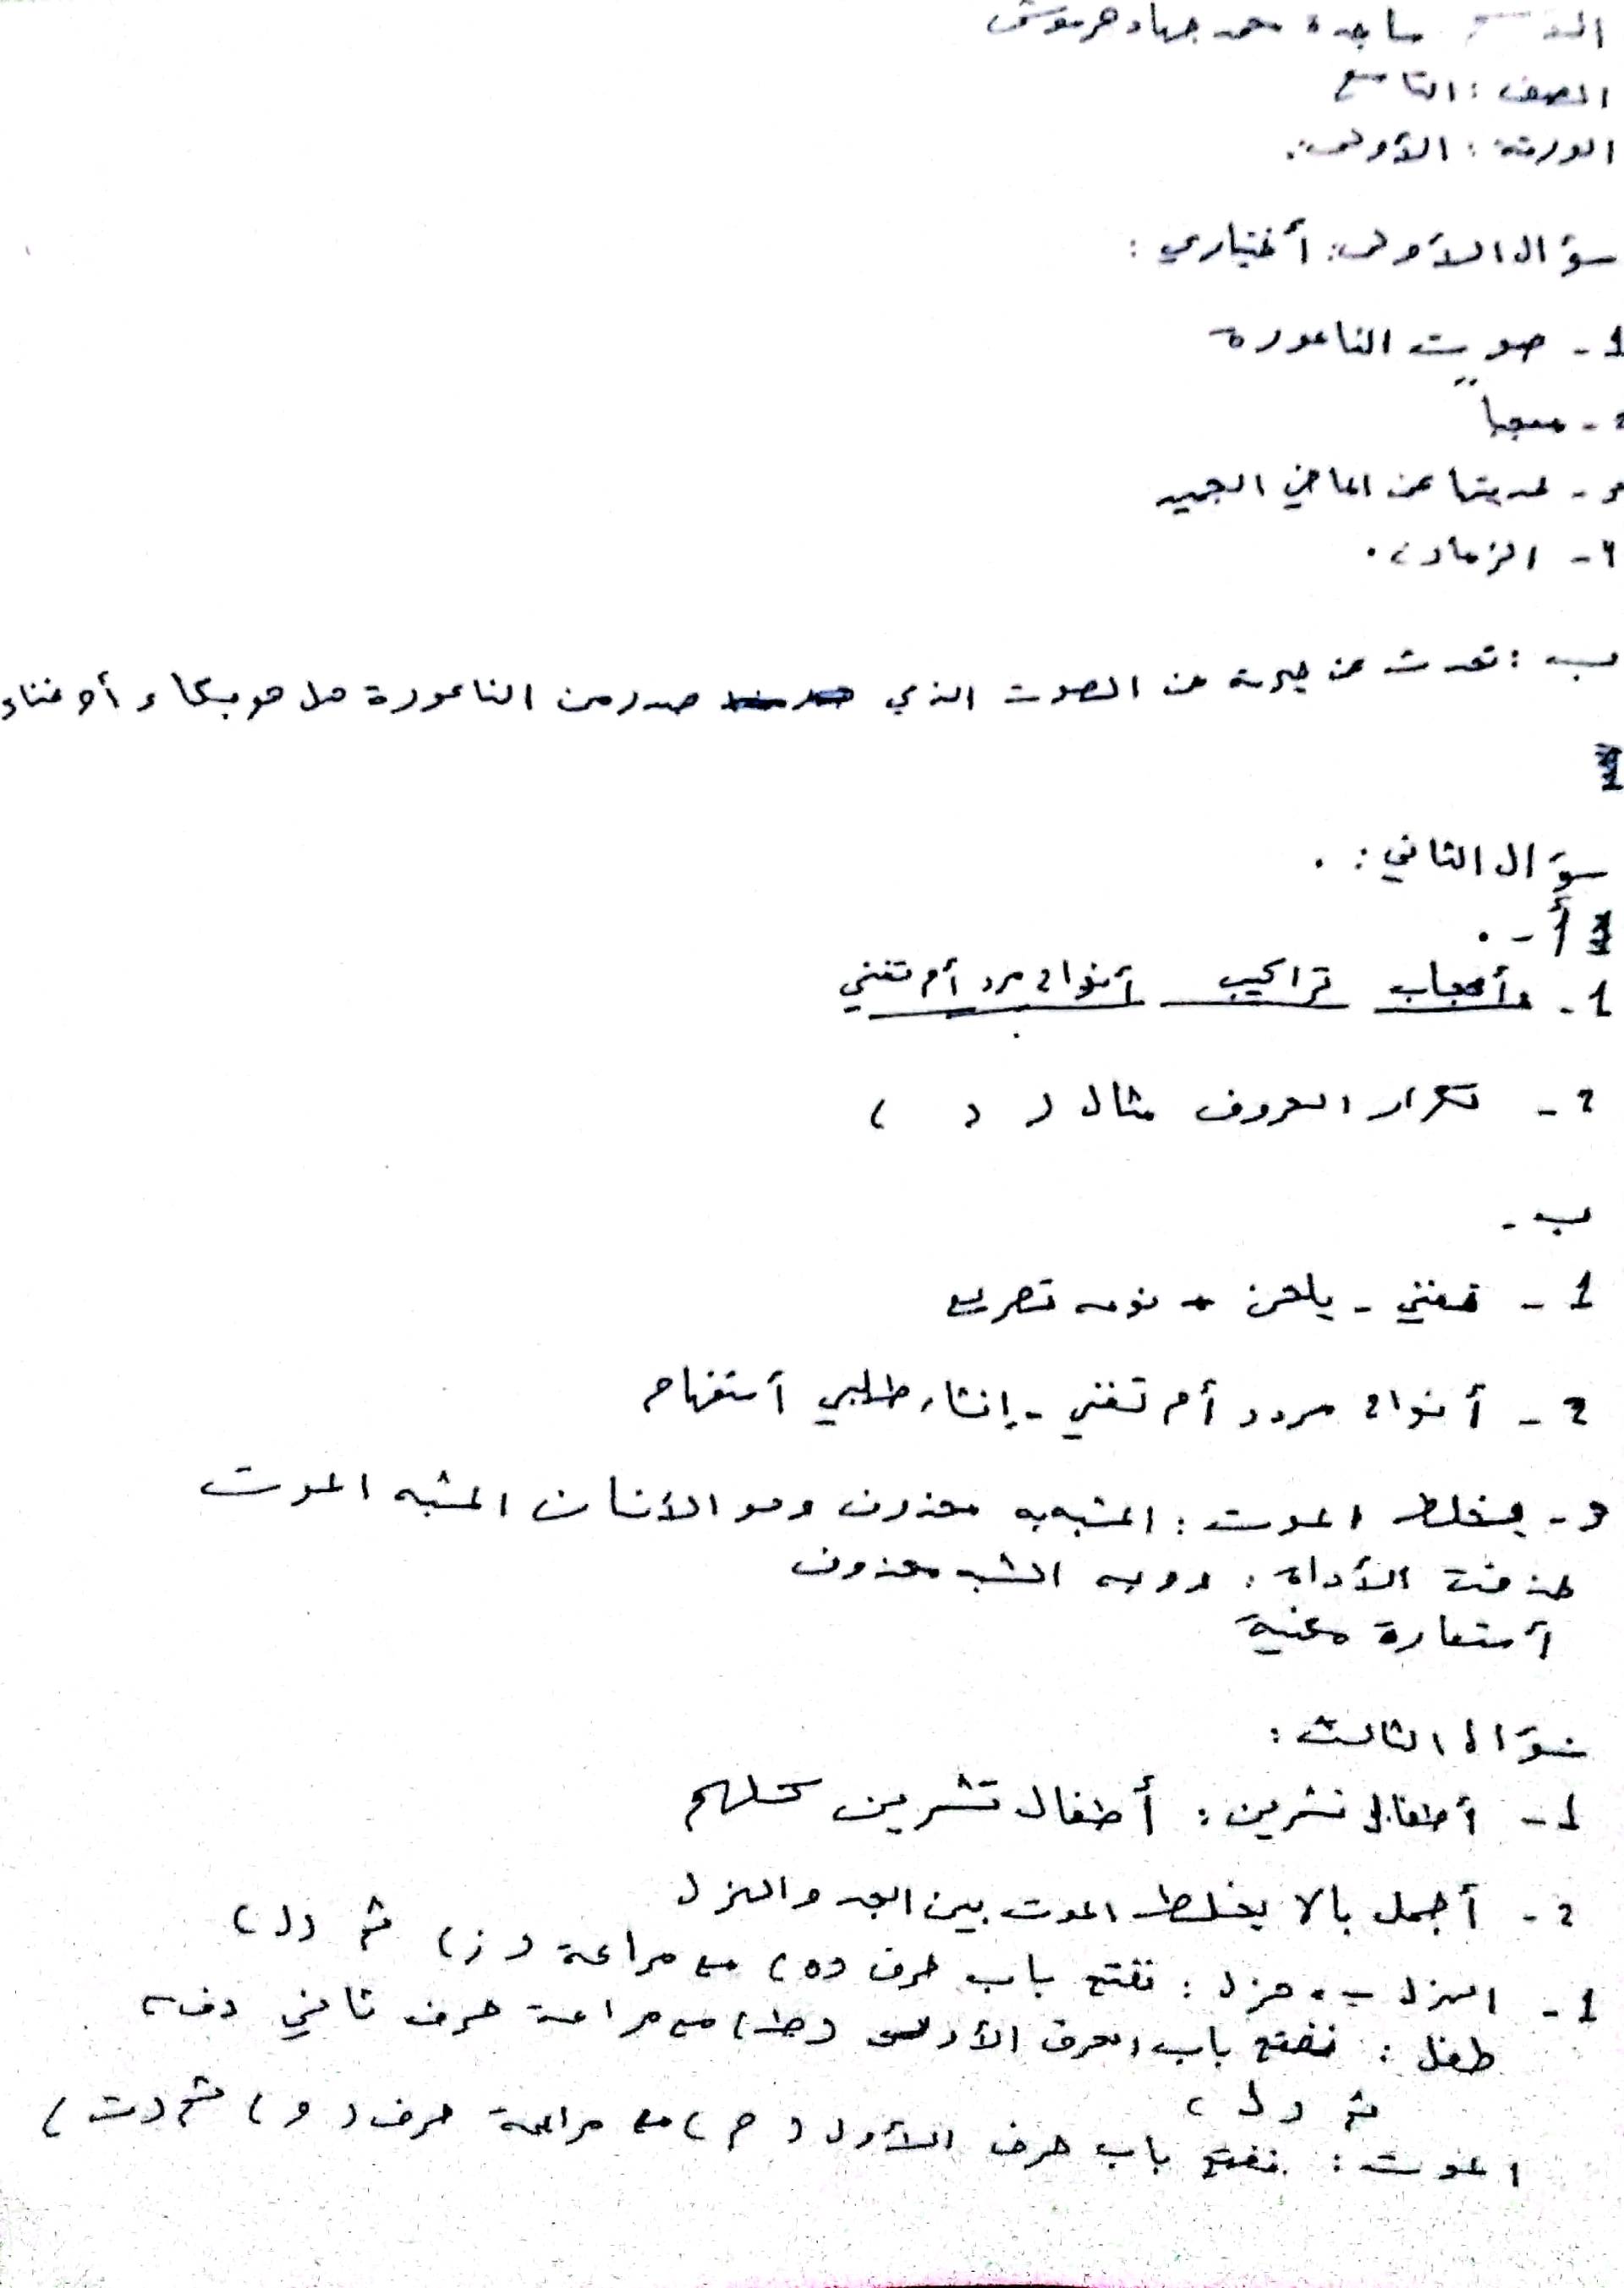 ساجدة محمد جهاد هرموش
الصف : التاسع
الورقة : الأولى .
سؤال الأولى : أختياري :
1 - صوت الناعورة
2 - سجيا
3 - لحديثها عن الماضي المجيد
4 - الزمان .
ب : تحدث عن حيرته من الصوت الذي صدر من الناعورة هل هو بكاء أو غناء
سؤال الثاني : .
أ - .
1 - تراكيب أنواح مردد أم تغني
2 - تكرار الحروف مثال ( د )
ب -
1 - تغني - يلحن + نوعه تصريع
2 - أنواح مردد أم تغني - إنشاء طلبي أستفهام
3 - يخلط الموت : المشبه به محذوف وهو الأنسان المشبه الموت
حذفت الأداة : ووجه الشبه محذوف
أستعارة مكنية
سؤال الثالث :
1 - أطفال تشرين : أطفال تشرين كلهم
2 - أجمل بالا يخلط الموت بين الجد والهزل
1 - الهزل ← هزل : نفتح باب حرف ( ه ) مع مراعة ( ز ) ثم ( ل )
طفل : نفتح باب الحرف الأول ( ط ) مع مراعة حرف ثاني ( ف )
ثم ( ل )
الموت : نفتح باب حرف الأول ( م ) مع مراعة حرف ( و ) ثم ( ت )